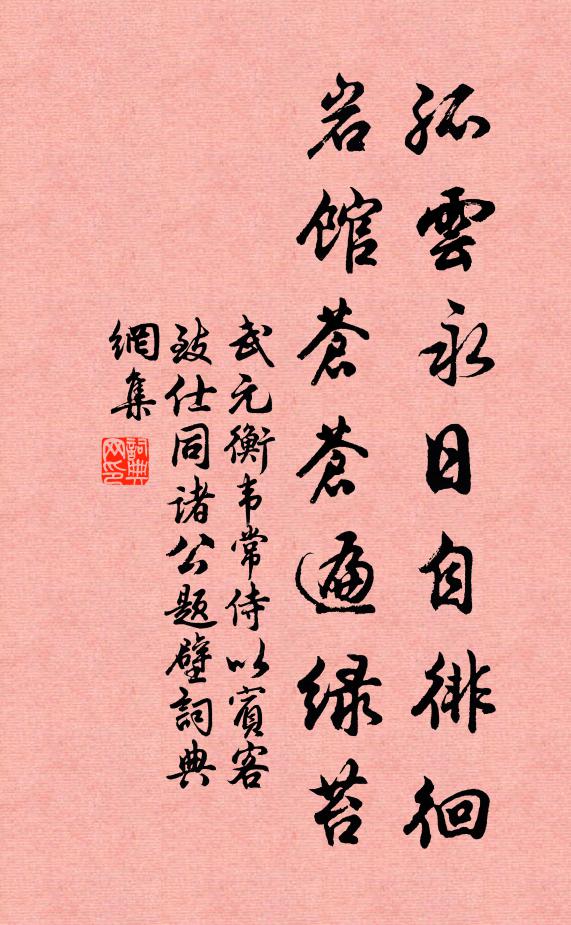 孤雲永日自徘徊
岩馆蒼蒼遍绿苔
武元衡韦常侍以賓客
致仕同诸公题壁詞典
網集
詞典网印